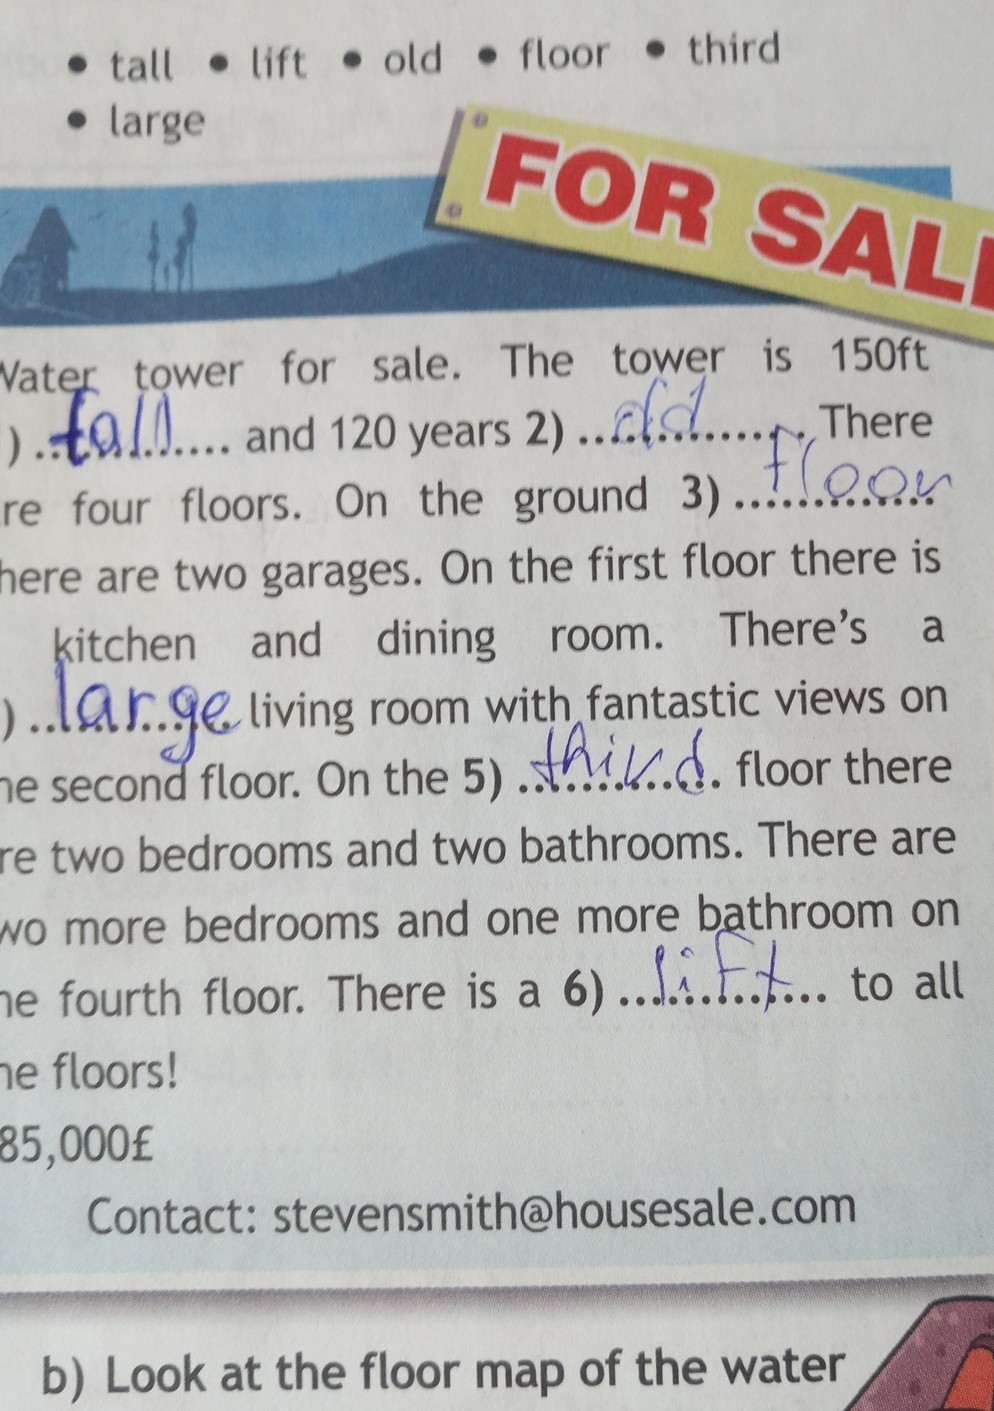 • tall • lift • old • floor • third
• large
FOR SAL
Water tower for sale. The tower is 150ft
) ..tall.... and 120 years 2) ..old......., There
re four floors. On the ground 3) ..floor..
here are two garages. On the first floor there is
kitchen and dining room. There's a
) ..large.. living room with fantastic views on
he second floor. On the 5) ..third.. floor there
re two bedrooms and two bathrooms. There are
wo more bedrooms and one more bathroom on
he fourth floor. There is a 6) ...lift... to all
he floors!
85,000£
Contact: stevensmith@housesale.com
b) Look at the floor map of the water